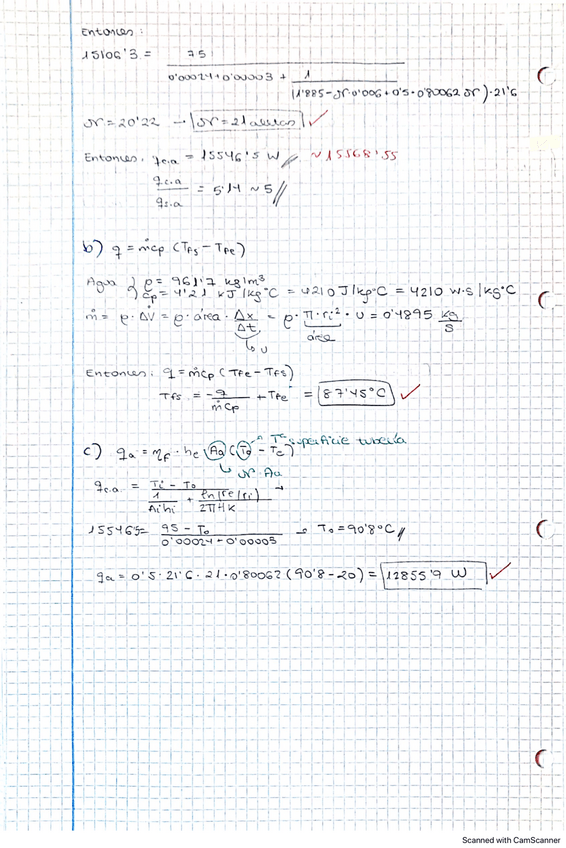 Entonces:
15106'3 = 75 / (0'00024 + 0'00003 + 1 / ((1'885 - N·0'006 + 0'5·0'80062 N)·21'6))
N = 20'22 → N = 21 aletas
Entonces, q c.a = 15546'5 W ~ 15568'55
q c.a / q s.a = 5'14 ~ 5
b) q = ṁ cp (Tfs - Tfe)
Agua { ρ = 961'7 kg/m³
cp = 4'21 kJ/kg°C = 4210 J/kg°C = 4210 W·s/kg°C
ṁ = ρ·ΔV̇ = ρ·área·Δx/Δt = ρ·π·ri²·v = 0'4895 kg/s
v
área
Entonces: q = ṁ cp (Tfe - Tfs)
Tfs = -q / ṁ cp + Tfe = 87'45°C
c) qa = ηf · he Aa (To - Te) → Tª superficie tubería
↳ N·Aa
q c.a = (Ti - To) / (1/(Ai hi) + ln(re/ri)/(2πHk)) →
15546'5 = (95 - To) / (0'00024 - 0'00003) → To = 90'8°C
qa = 0'5·21'6·21·0'80062 (90'8 - 20) = 12855'9 W
Scanned with CamScanner